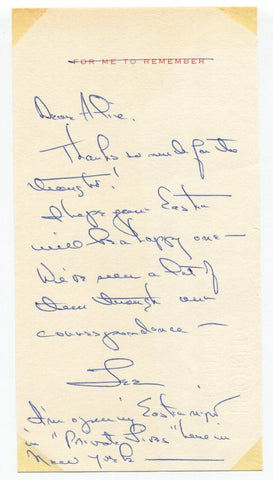 FOR ME TO REMEMBER
Dear Alice,
Thanks so much for the
thought!
I hope your Easter
will be a happy one —
We've seen a lot of
them through our
correspondence —
I'm opening Easter night
in "Private Lives" here in
New York —